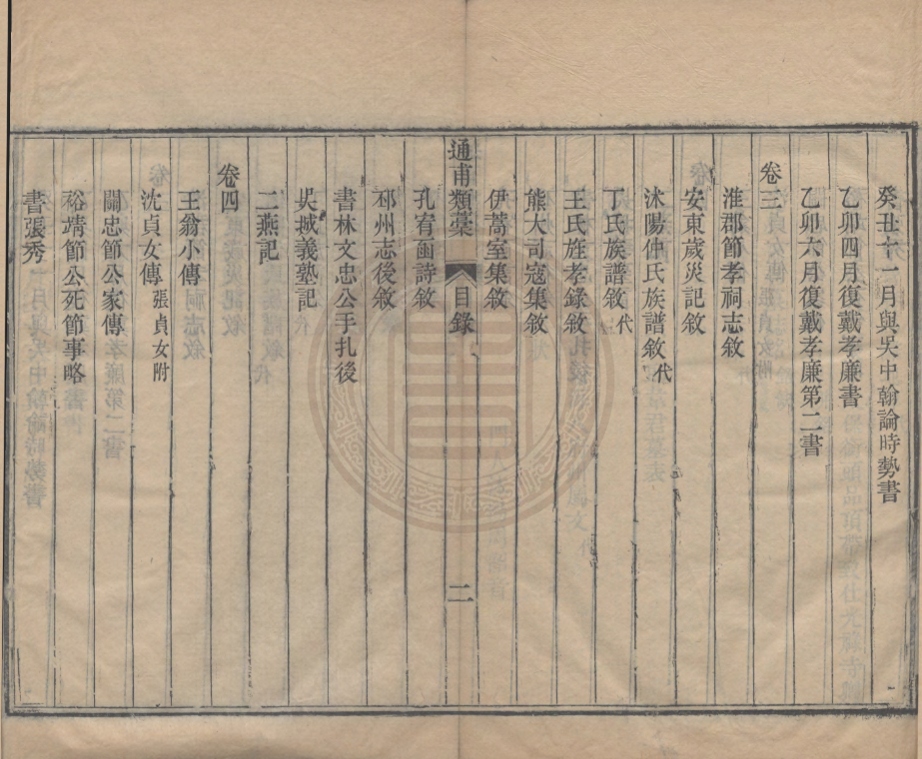 癸丑十一月與吴中翰論時勢書
乙卯四月復戴孝廉書
乙卯六月復戴孝廉第二書
卷三
淮郡節孝祠志敘
安東歲災記敘
沭陽仲氏族譜敘代
丁氏族譜敘代
王氏旌孝錄敘
熊大司寇集敘
伊蒿室集敘
通甫類藁
目錄
二
孔宥函詩敘
邳州志後敘
書林文忠公手扎後
吴城義塾記
二燕記
卷四
王翁小傳
沈貞女傳張貞女附
關忠節公家傳
裕靖節公死節事略
書張秀